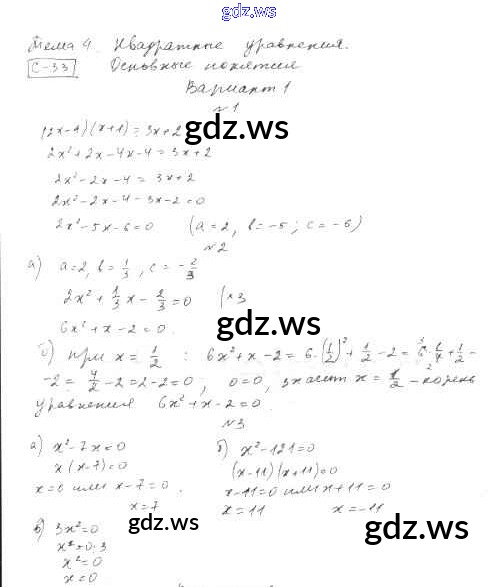 gdz.ws
Тема 4. Квадратные уравнения.
С-33 Основные понятия
Вариант 1
№1
(2x-4)(x+1)=3x+2
gdz.ws
2x²+2x-4x-4=3x+2
2x²-2x-4=3x+2
2x²-2x-4-3x-2=0
2x²-5x-6=0 (a=2, b=-5; c=-6)
№2
а) a=2, b=1/3, c=-2/3
2x²+1/3x-2/3=0 |×3
gdz.ws
6x²+x-2=0.
б) при x=1/2 : 6x²+x-2=6·(1/2)²+1/2-2=6·1/4+1/2-
-2=4/2-2=2-2=0, 0=0, значит x=1/2 - корень
уравнения 6x²+x-2=0.
№3
а) x²-7x=0 б) x²-121=0
x(x-7)=0 (x-11)(x+11)=0
x=0 или x-7=0. x-11=0 или x+11=0
x=7 x=11 x=-11
gdz.ws gdz.ws
в) 3x²=0
x²=0:3
x²=0
x=0